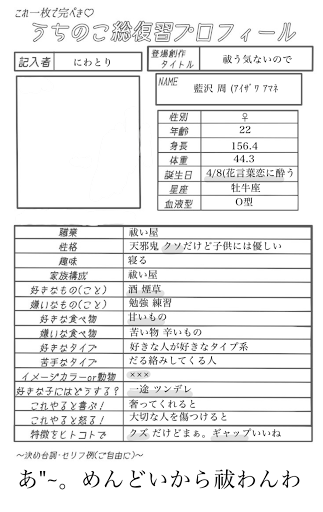 これ一枚で完ぺき♡
うちのこ総復習プロフィール
記入者 にわとり
登場創作タイトル 祓う気ないので
NAME
藍沢 周 (ｱｲｻﾞﾜ ｱﾏﾈ
性別 ♀
年齢 22
身長 156.4
体重 44.3
誕生日 4/8(花言葉恋に酔う
星座 牡牛座
血液型 O型
職業 祓い屋
性格 天邪鬼 クソだけど子供には優しい
趣味 寝る
家族構成 祓い屋
好きなもの(こと) 酒 煙草
嫌いなもの(こと) 勉強 練習
好きな食べ物 甘いもの
嫌いな食べ物 苦い物 辛いもの
好きなタイプ 好きな人が好きなタイプ系
苦手なタイプ だる絡みしてくる人
イメージカラーor動物 ×××
好きな子にはどうする? 一途 ツンデレ
これやると喜ぶ! 奢ってくれると
これやると怒る! 大切な人を傷つけると
特徴をヒトコトで クズ だけどまぁ。ギャップいいね
～決め台詞・セリフ例(ご自由に)～
あ"~。めんどいから祓わんわ